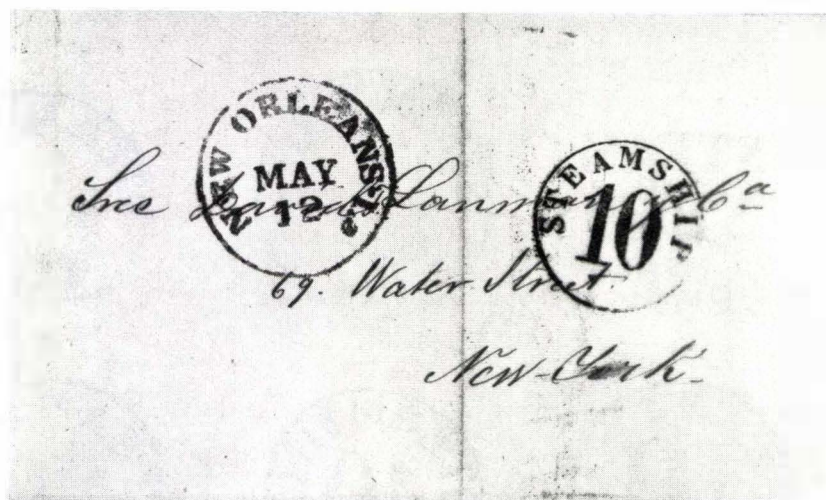 NEW ORLEANS
MAY
12
STEAMSHIP
10
Lanman y Ca
69. Water Street.
New-York-